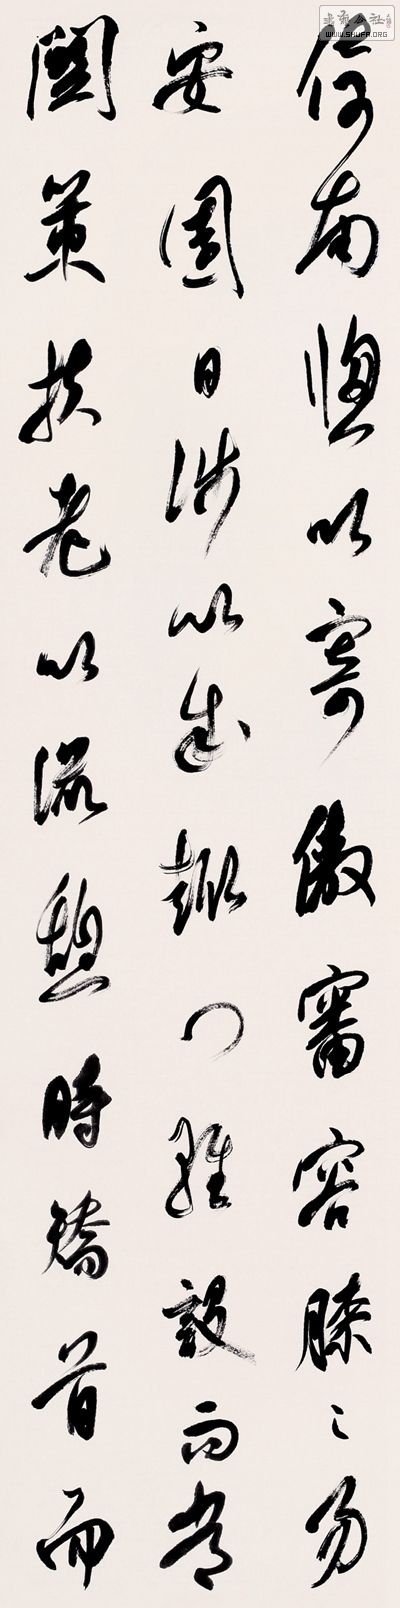 倚南窗以寄傲審容膝之易
安園日涉以成趣門雖設而常
關策扶老以流憩時矯首而
書法公社
WWW.SHUFA.ORG